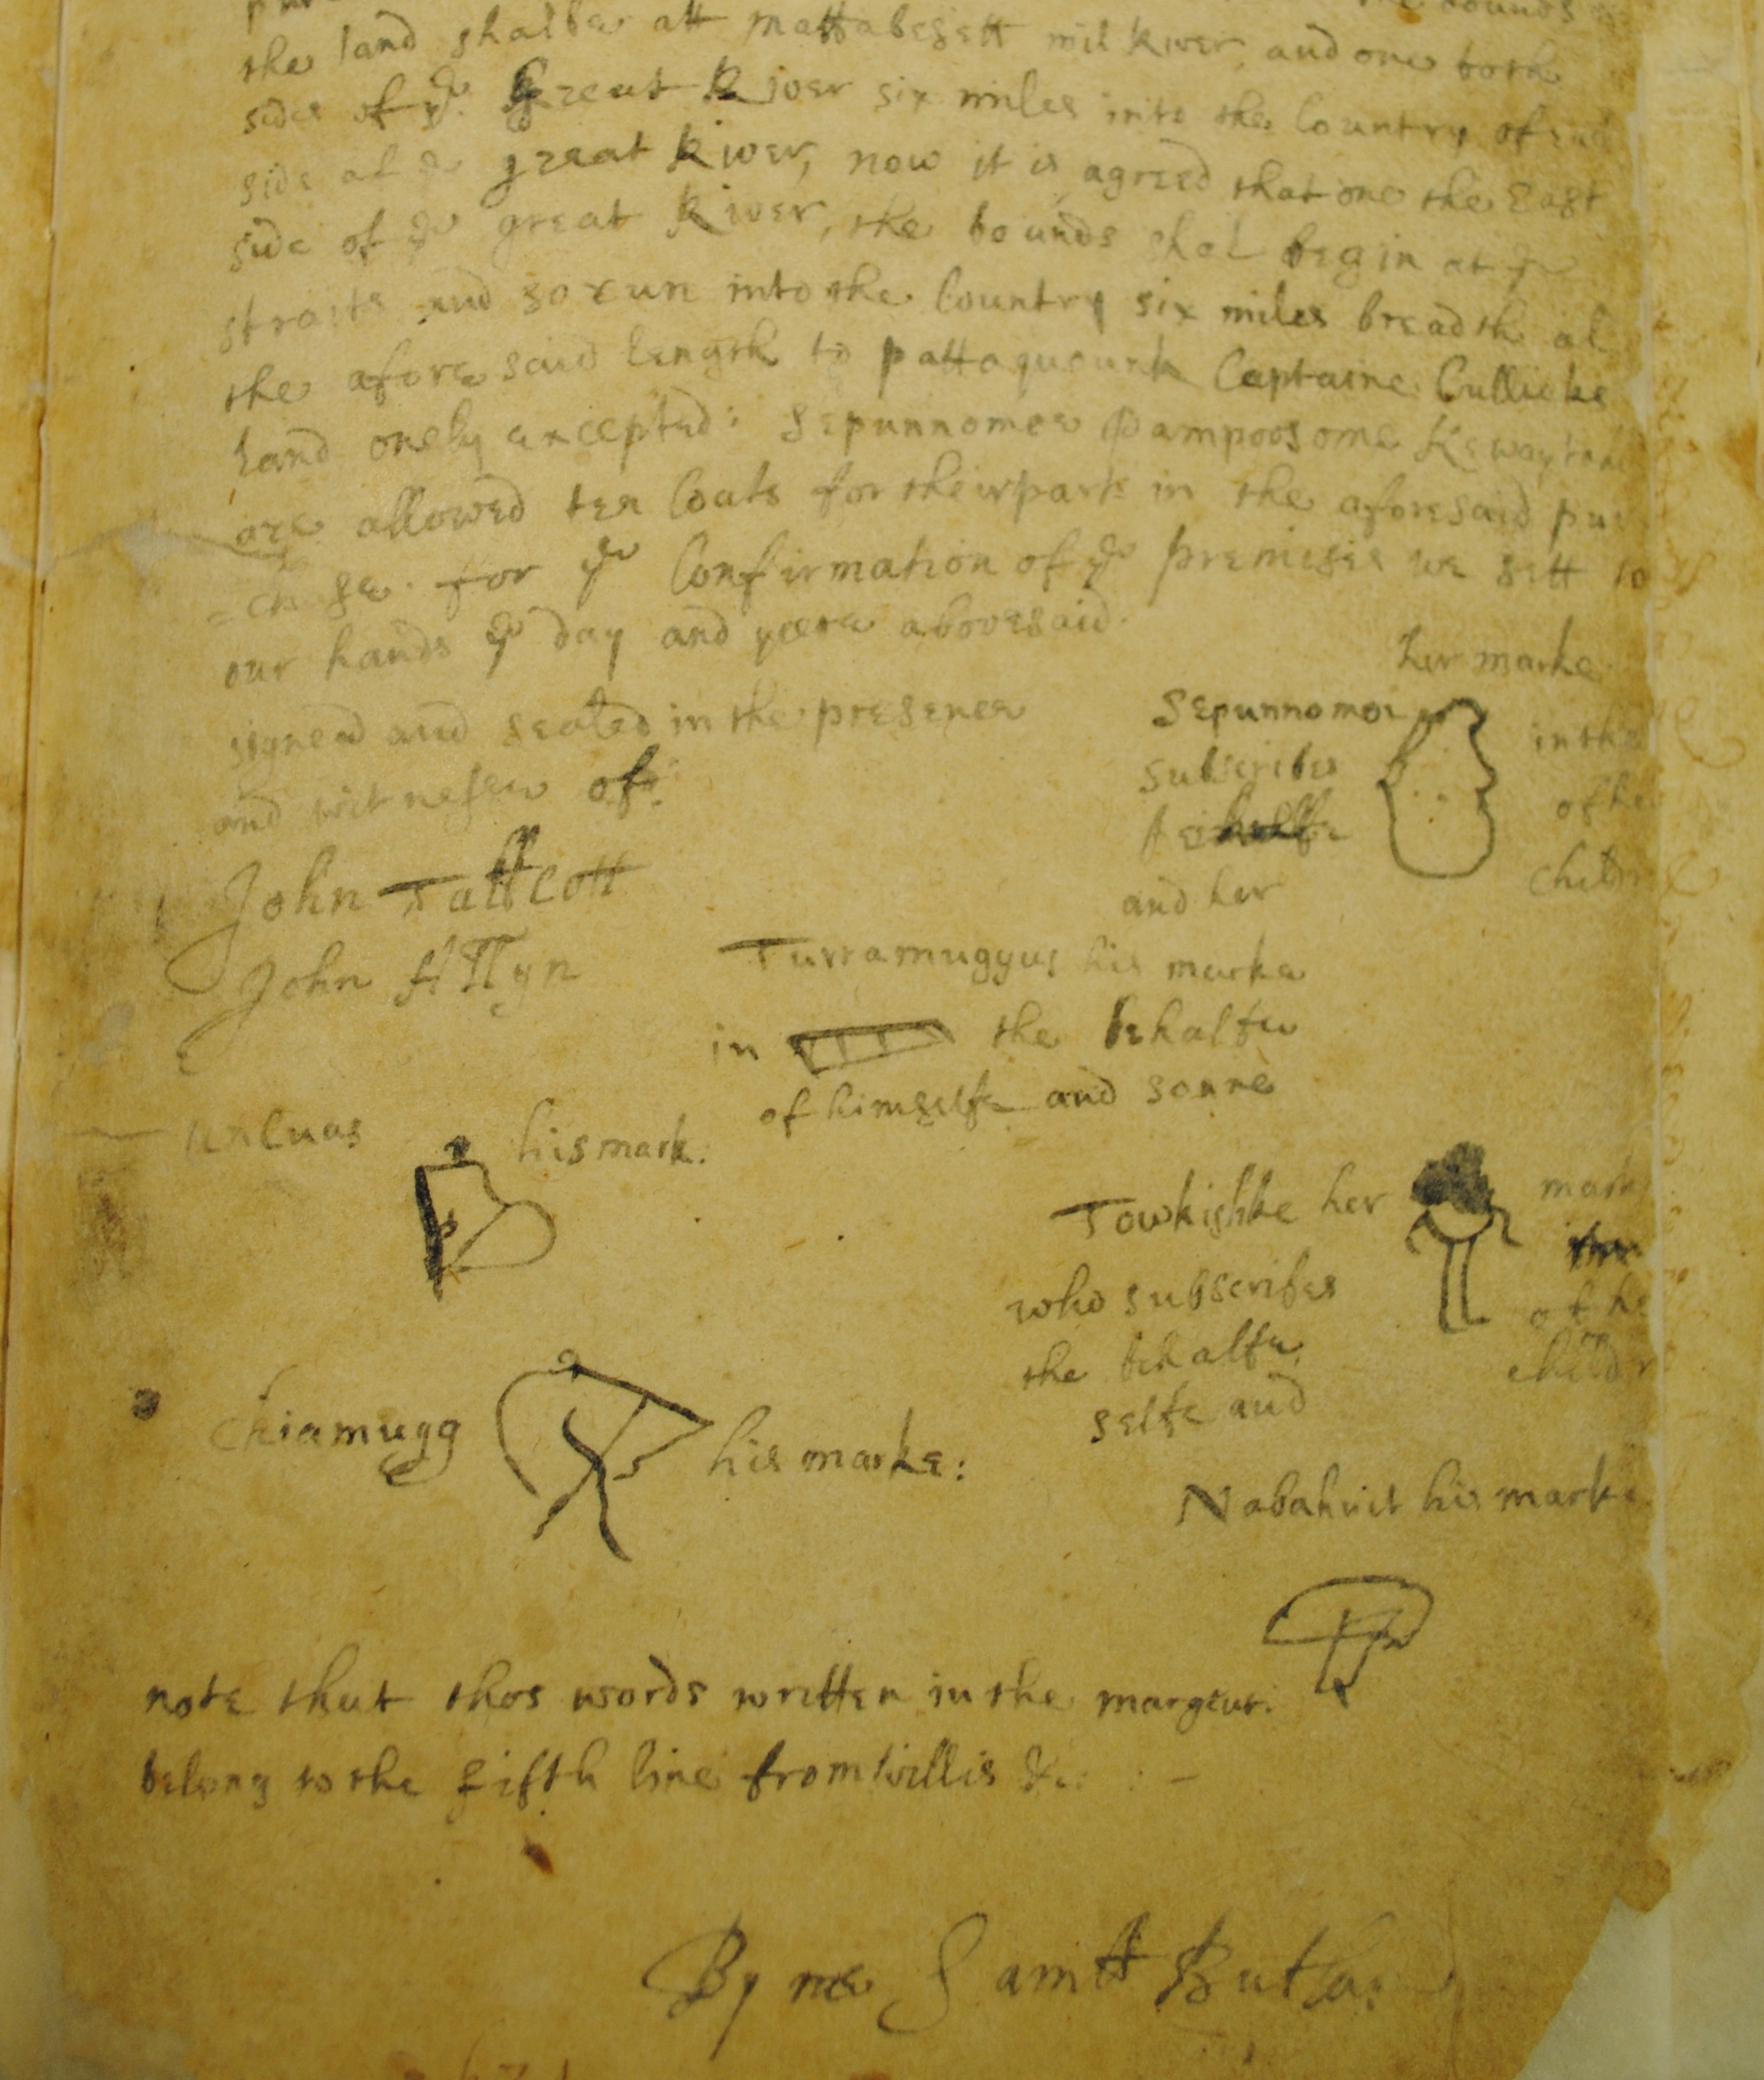 the bounds
the land shalbe att mattabesett mil River, and one both
sides of ye Great River six miles into the Country of each
side of ye great River, now it is agreed that one the East
side of ye great River, the bounds shal begin at ye
straits and so run into the Country six miles breadth al
the afore said length to pattaquounk Captaine Cullicke
land onely excepted: Sepunnomoe Pampoosome
are allowed ten Coats for their part in the aforesaid pur
=chase. for ye Confirmation of ye premises we sett to
our hands ye day and yeere abovesaid.
signed and sealed in the presence
and witnesse of:
her marke
Sepunnomoe in the
subscribes of he
childr
and her
John Tallcott
John Allyn
Turramuggus his marke
in the behalfe
of himselfe and sonne
unkuas his mark.
Towkishke her mark
who subscribes of he
the behalfe childr
selfe and
Chiamugg his marke:
Nabahuit his marke
note that thos words written in the margent.
belong to the fifth line from willis &c: : -
By me Samll Butler